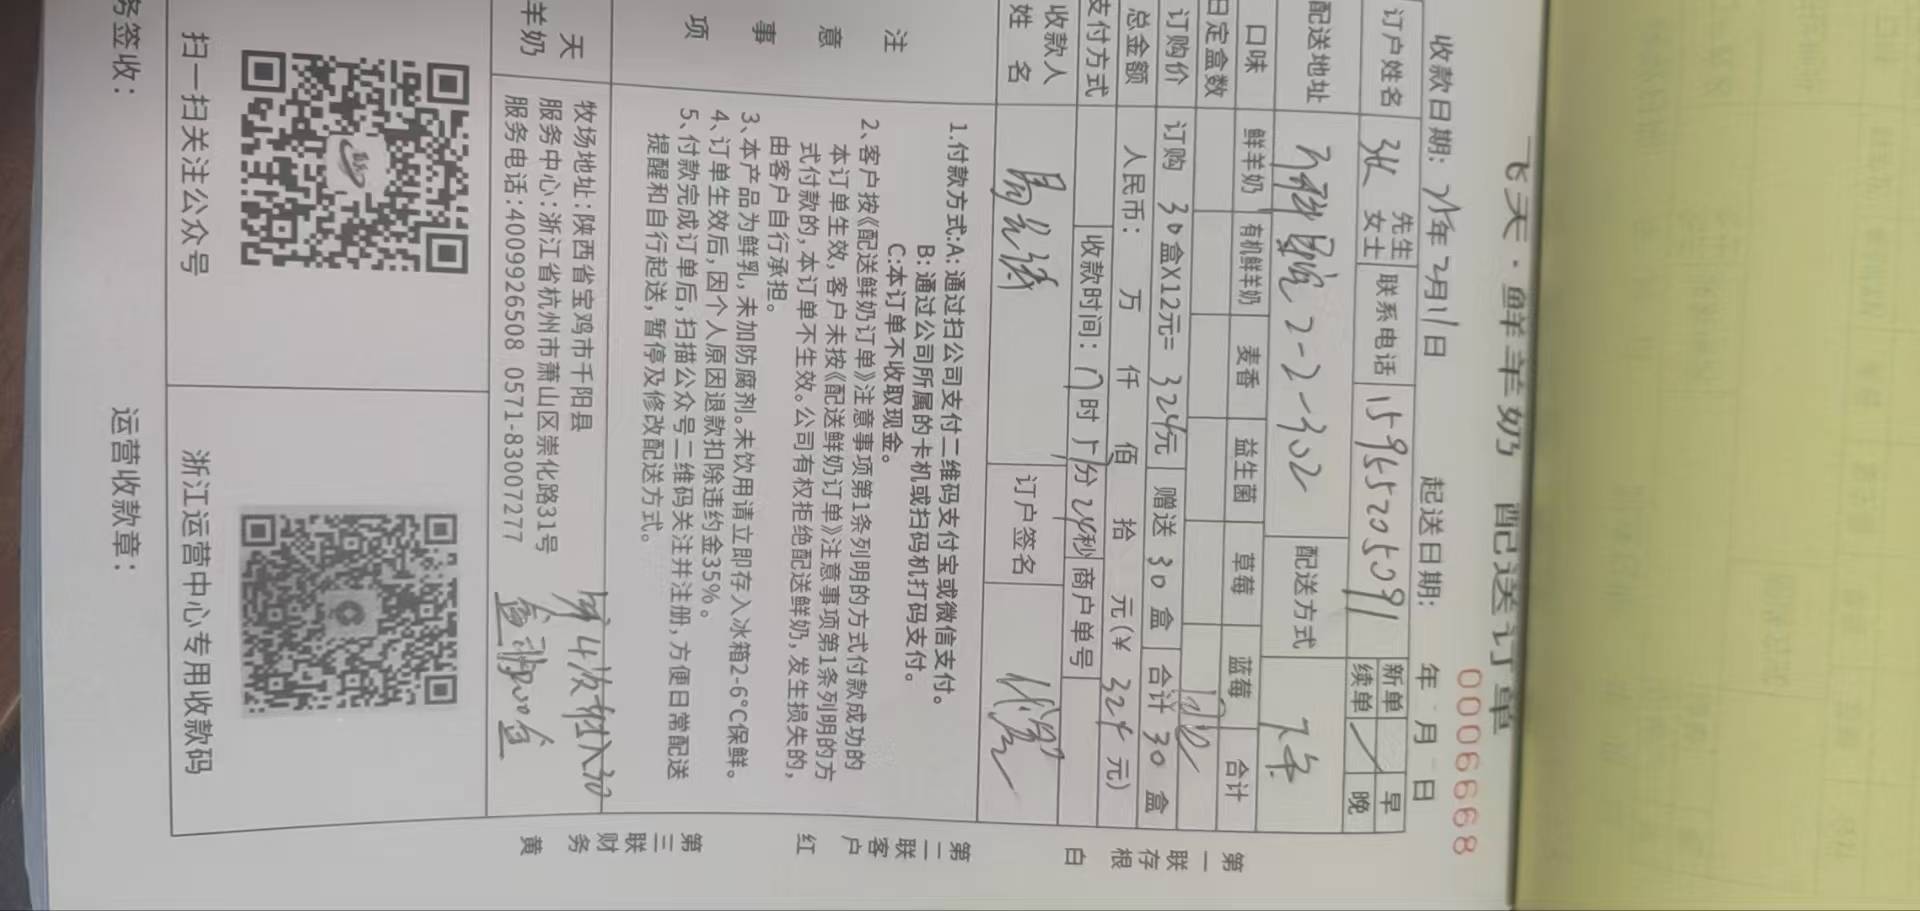 飞天·鲜羊奶 配送订单
0006668
收款日期: 年 月 日 起送日期: 年 月 日
订户姓名 张 先生 女士 联系电话 15955205091 新单 续单 早 晚
配送地址 2-2-302 配送方式
口味 鲜羊奶 有机鲜羊奶 麦香 益生菌 草莓 蓝莓 合计
日定盒数
订购价 订购 30盒X12元= 324元 赠送 30 盒 合计 30 盒
总金额 人民币: 万 仟 佰 拾 元(¥ 324 元)
支付方式 收款时间: 时 分 秒 商户单号
收款人姓名 订户签名
注意事项
1.付款方式:A: 通过扫公司支付二维码支付宝或微信支付。
B: 通过公司所属的卡机或扫码机打码支付。
C:本订单不收取现金。
2、客户按《配送鲜奶订单》注意事项第1条列明的方式付款成功的
本订单生效,客户未按《配送鲜奶订单》注意事项第1条列明的方
式付款的,本订单不生效。公司有权拒绝配送鲜奶,发生损失的,
由客户自行承担。
3、本产品为鲜乳,未加防腐剂。未饮用请立即存入冰箱2-6°C保鲜。
4、订单生效后,因个人原因退款扣除违约金35%。
5、付款完成订单后,扫描公众号二维码关注并注册,方便日常配送
提醒和自行起送,暂停及修改配送方式。
天
羊奶
牧场地址:陕西省宝鸡市千阳县
服务中心:浙江省杭州市萧山区崇化路31号
服务电话:4009926508 0571-83007277
扫一扫关注公众号
浙江运营中心专用收款码
务签收: 运营收款章:
第一联存根 白
第二联客户 红
第三联财务 黄